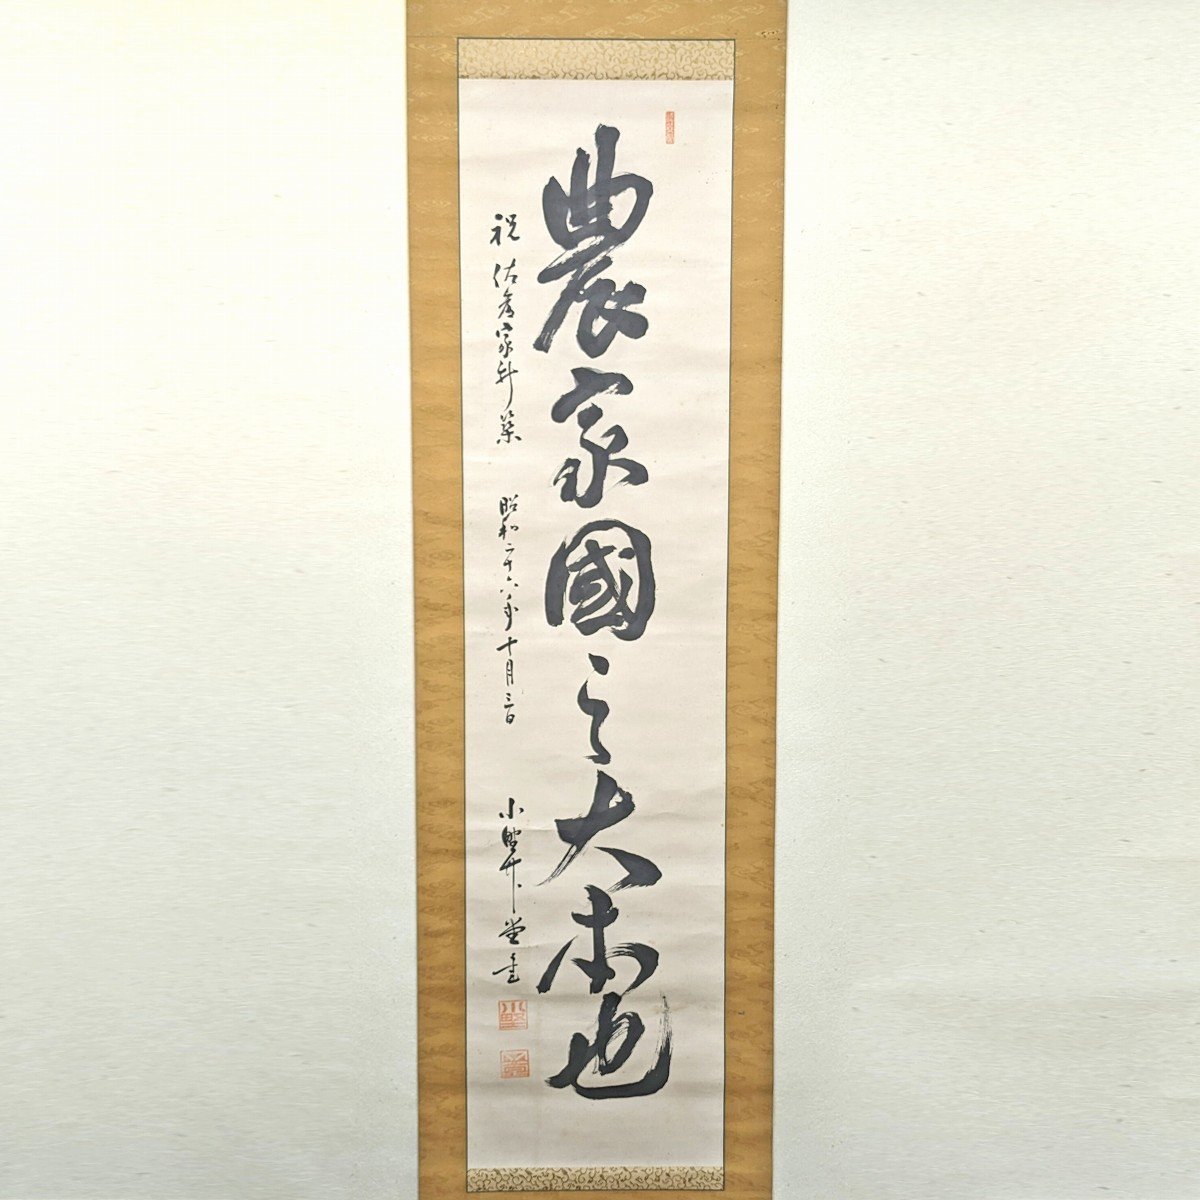 農家國之大本也
祝 佐彦家新築 昭和二十六年十月三日 小野竹堂書
小野